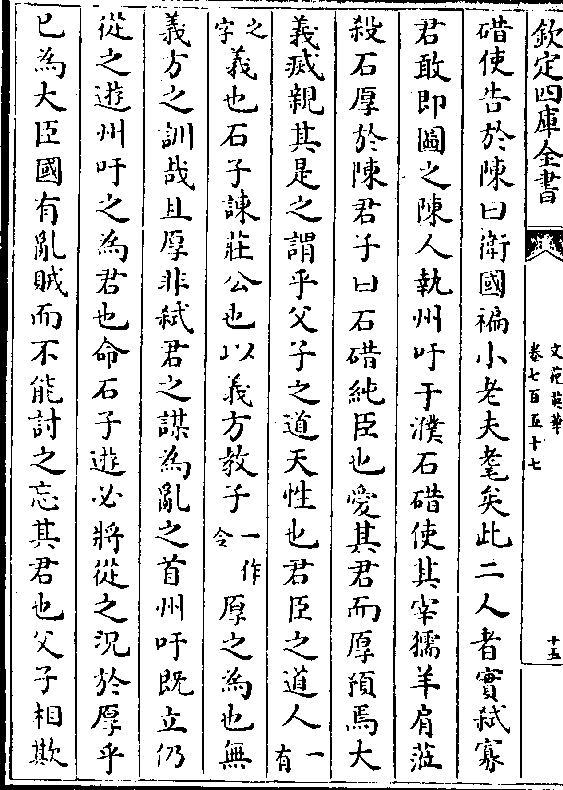 欽定四庫全書
文苑英華
卷七百五十七
十五
碏使告於陳曰衛國褊小老夫耄矣此二人者實弑寡
君敢即圖之陳人執州吁于濮石碏使其宰獳羊肩蒞
殺石厚於陳君子曰石碏純臣也愛其君而厚預焉大
義滅親其是之謂乎父子之道天性也君臣之道人一有
之字義也石子諫莊公也以義方教子一作令厚之為也無
義方之訓哉且厚非弑君之謀為亂之首州吁既立仍
從之遊州吁之為君也命石子遊必將從之況於厚乎
已為大臣國有亂賊而不能討之忘其君也父子相欺